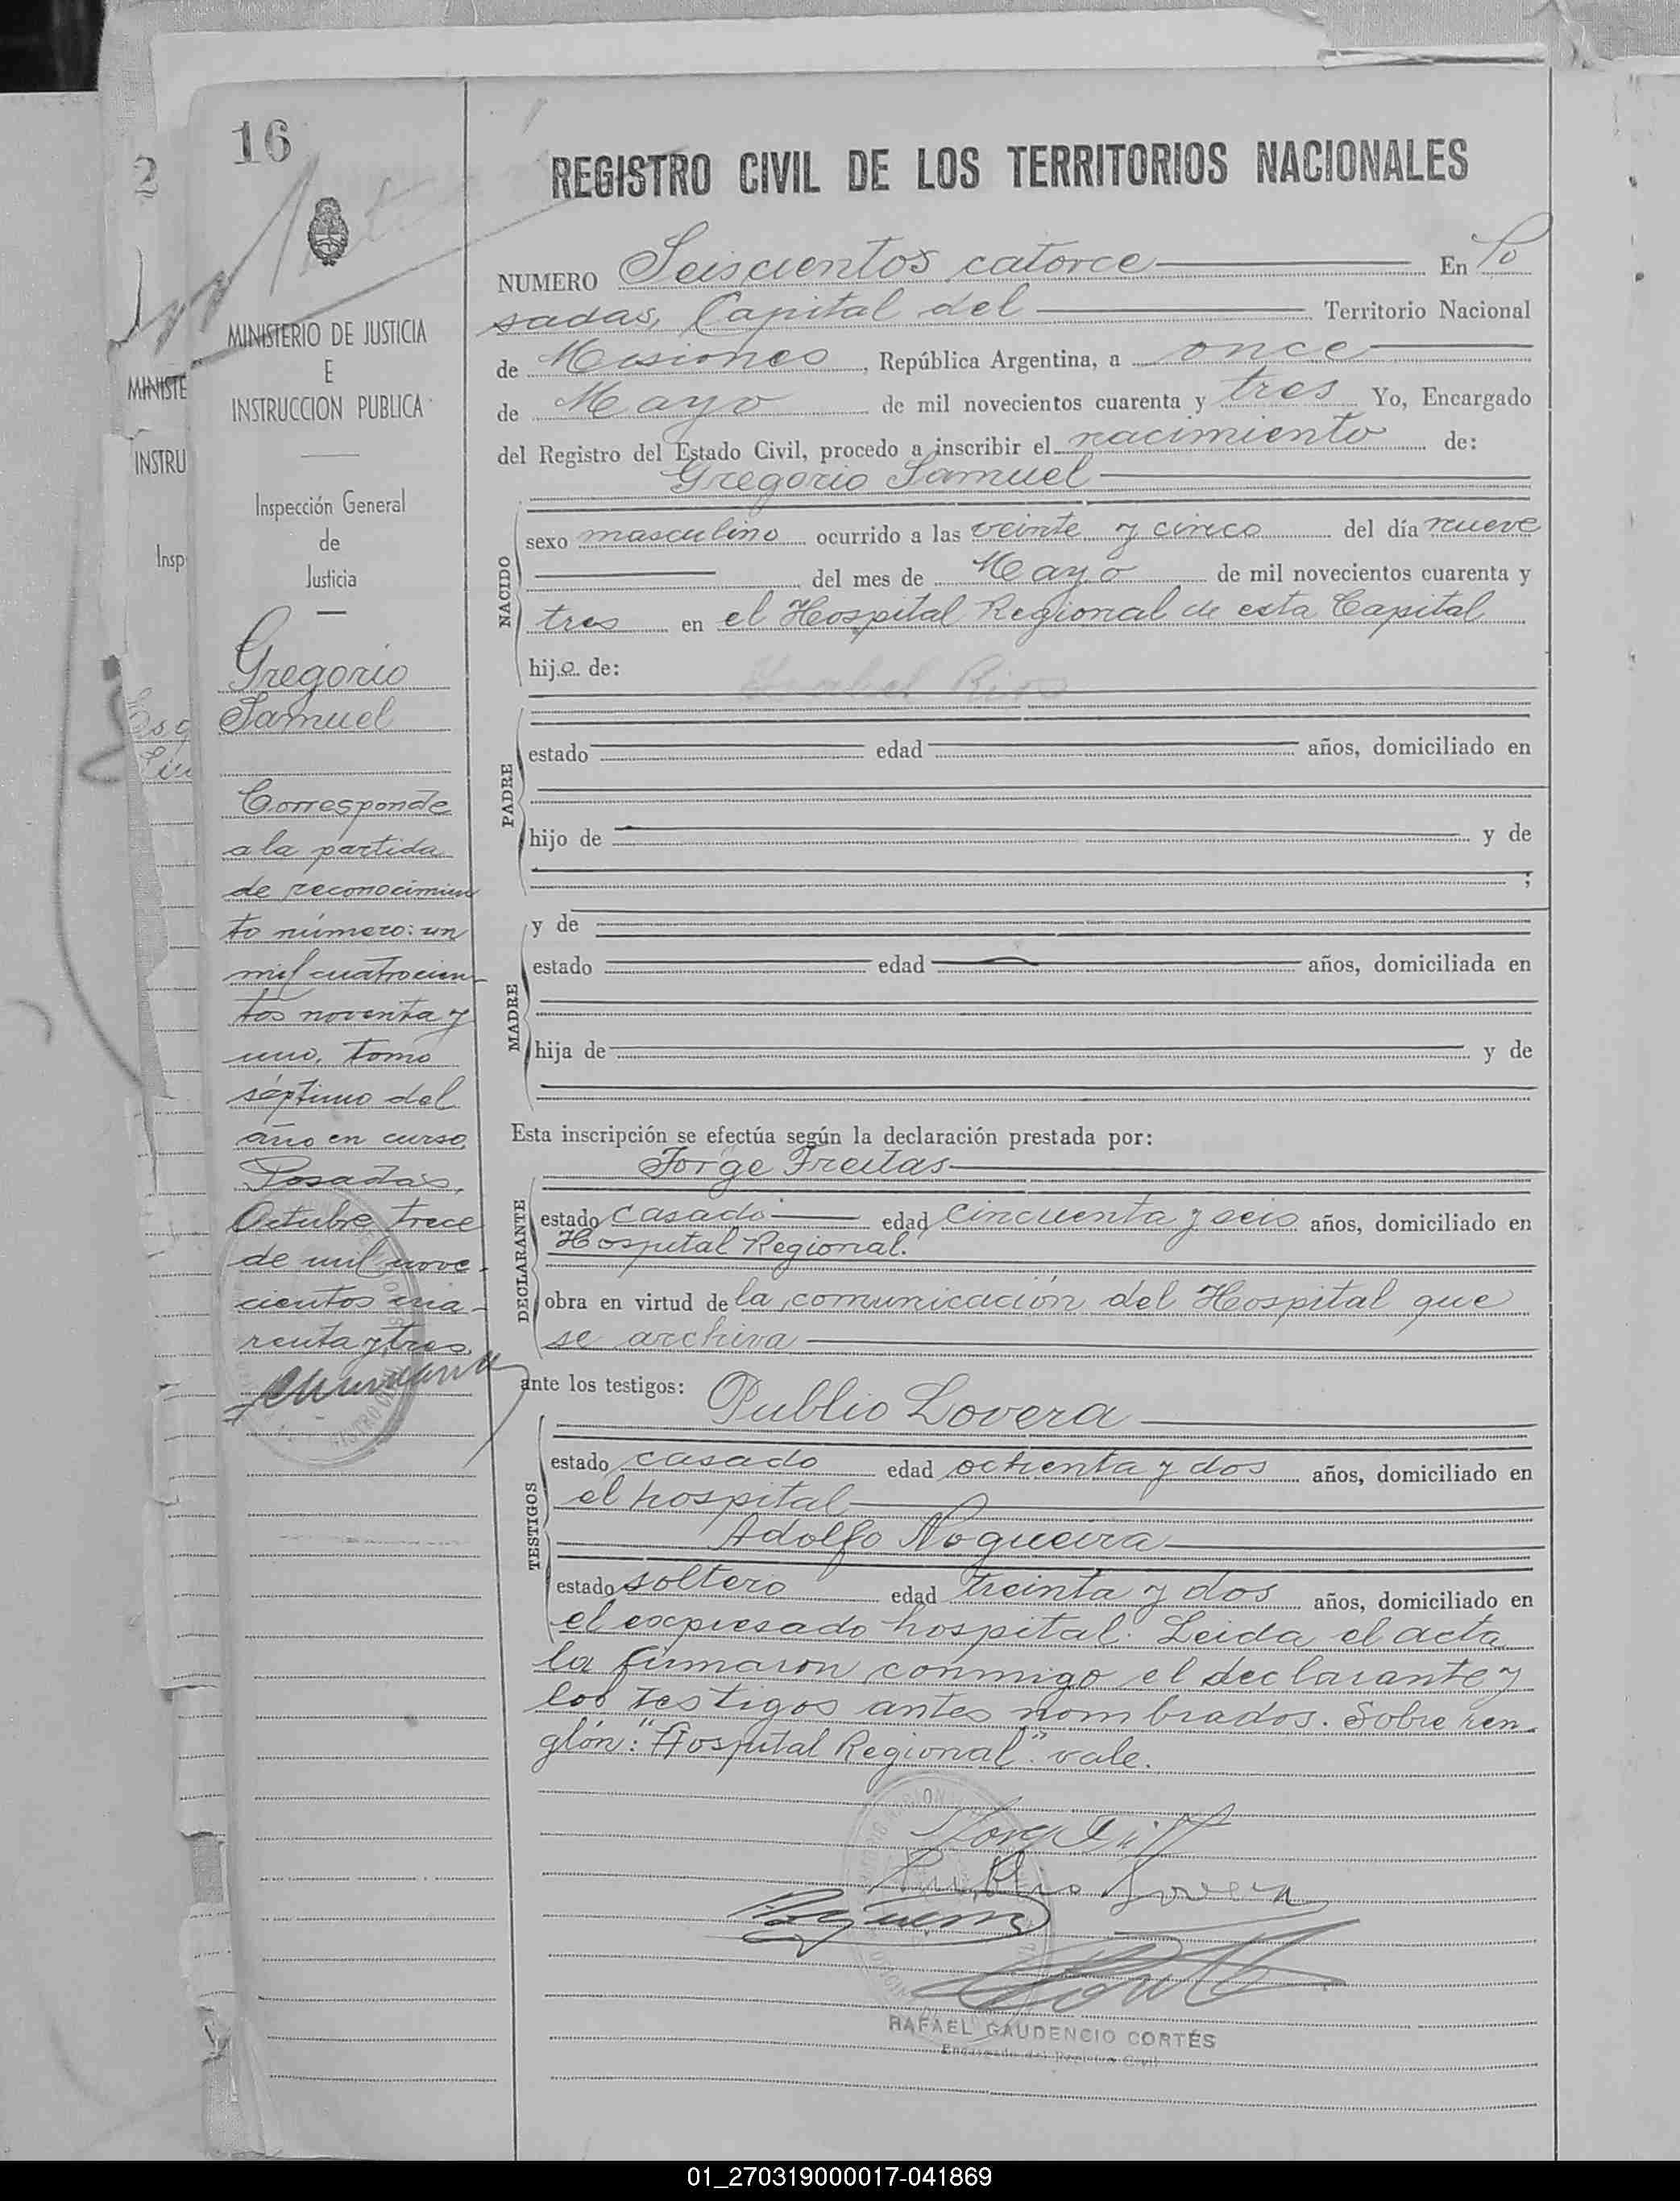 16
2
MINISTERIO DE JUSTICIA
E
INSTRUCCION PUBLICA
Inspección General
de
Justicia
Gregorio
Samuel
Corresponde
a la partida
de reconocimien
to número: un
mil cuatrocien-
tos noventa y
uno, tomo
séptimo del
año en curso,
Posadas,
Octubre trece
de mil nove-
cientos cua-
renta y tres
MINISTE
INSTRU
Insp
REGISTRO CIVIL DE LOS TERRITORIOS NACIONALES
NUMERO Seiscientos catorce En Po
sadas, Capital del Territorio Nacional
de Misiones, República Argentina, a once
de Mayo de mil novecientos cuarenta y tres Yo, Encargado
del Registro del Estado Civil, procedo a inscribir el nacimiento de:
Gregorio Samuel
NACIDO
sexo masculino ocurrido a las veinte y cinco del día nueve
del mes de Mayo de mil novecientos cuarenta y
tres en el Hospital Regional de esta Capital
hijo de:
PADRE
estado edad años, domiciliado en
hijo de y de
;
y de
MADRE
estado edad años, domiciliada en
hija de y de
Esta inscripción se efectúa según la declaración prestada por:
Jorge Freitas
DECLARANTE
estado casado edad cincuenta y seis años, domiciliado en
Hospital Regional.
obra en virtud de la comunicación del Hospital que
se archiva
ante los testigos: Publio Lovera
TESTIGOS
estado casado edad ochenta y dos años, domiciliado en
el hospital
Adolfo Nogueira
estado soltero edad treinta y dos años, domiciliado en
el expresado hospital. Leida el acta
la firmaron conmigo el declarante y
los testigos antes nombrados. Sobre ren-
glón: "Hospital Regional". vale.
Publio Lovera
RAFAEL GAUDENCIO CORTÉS
Encargado del Registro Civil
01_270319000017-041869